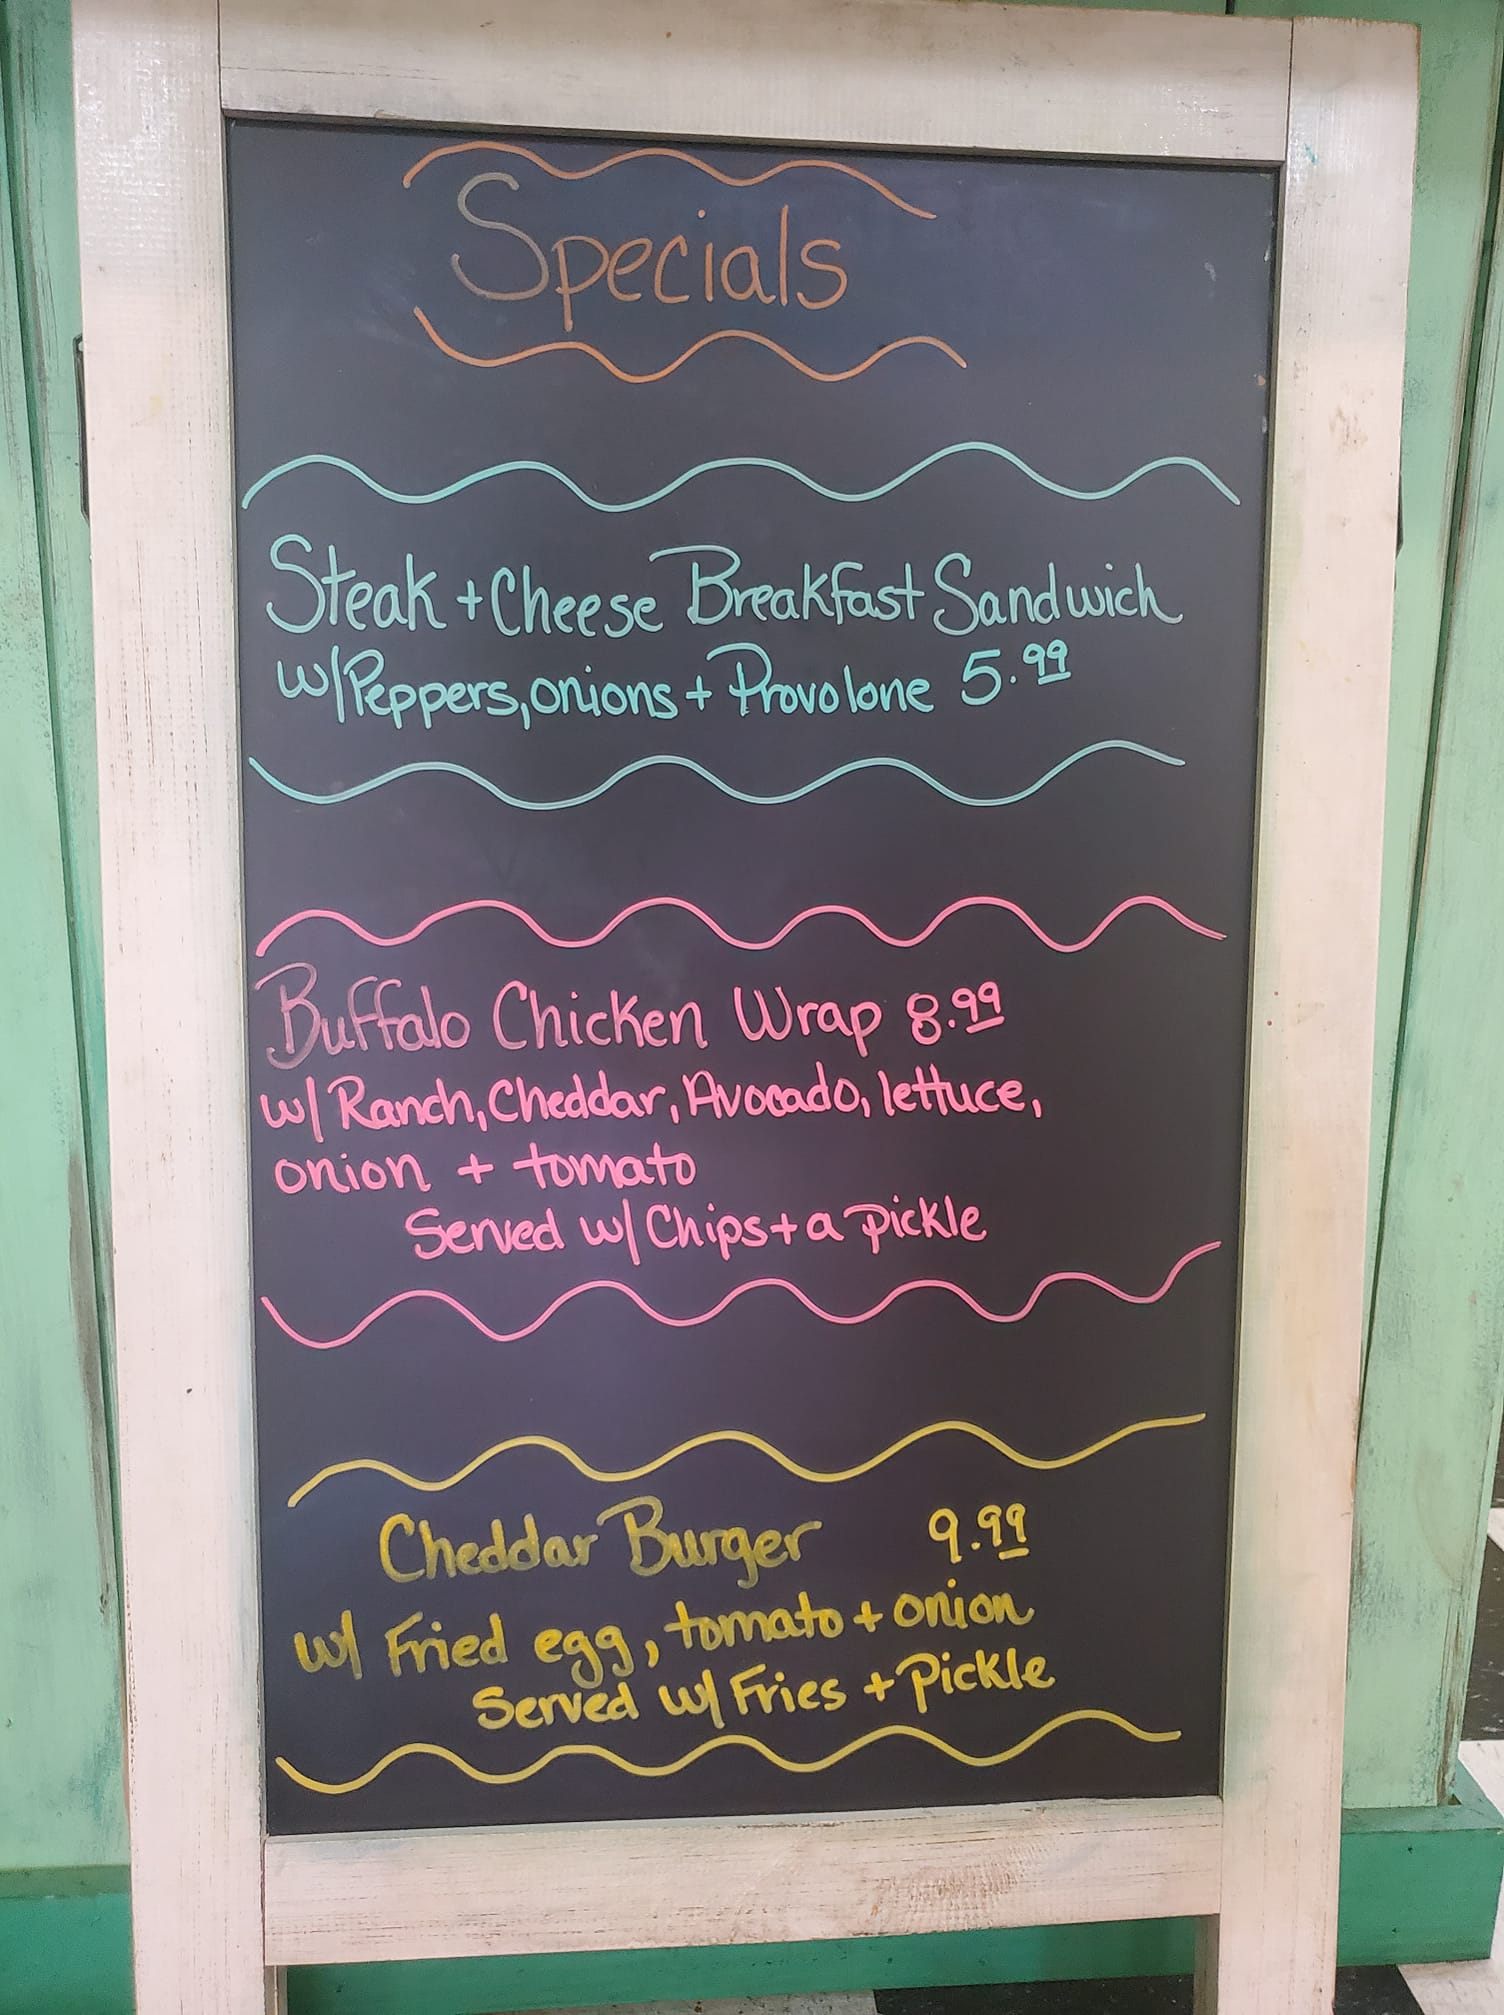 Specials
Steak + Cheese Breakfast Sandwich
w/Peppers, onions + Provolone 5.99
Buffalo Chicken Wrap 8.99
w/ Ranch, Cheddar, Avocado, lettuce,
onion + tomato
Served w/ Chips + a pickle
Cheddar Burger 9.99
w/ Fried egg, tomato + onion
Served w/ Fries + Pickle